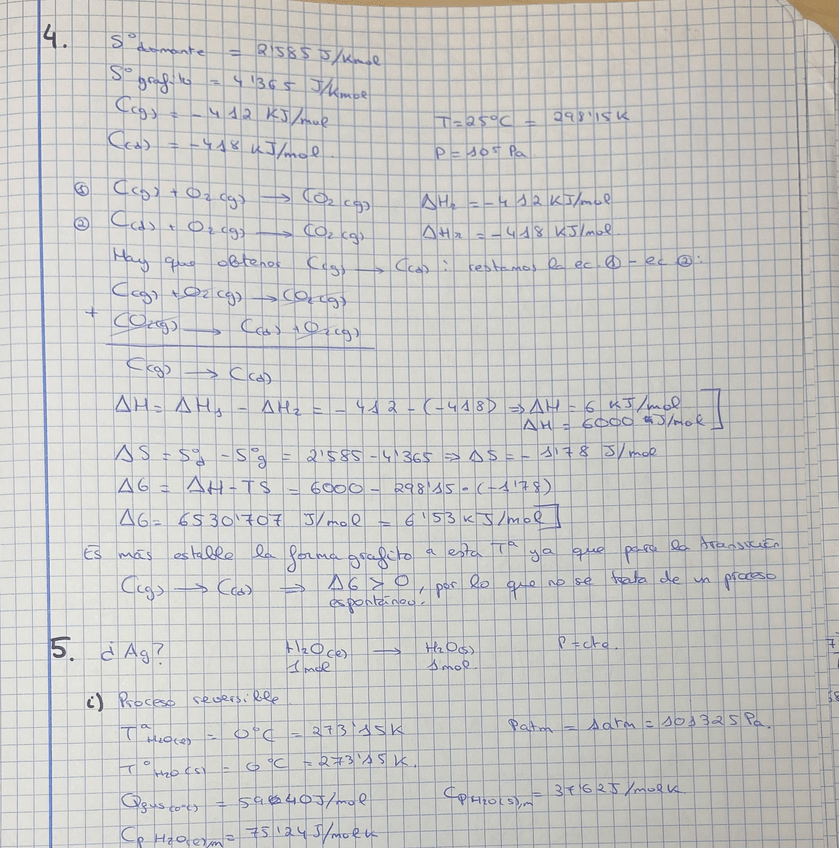 4. S°diamante = 2'585 J/Kmol
S°grafito = 4'365 J/Kmol
C(g) = -412 KJ/mol T=25°C = 298'15K
C(d) = -418 KJ/mol. P=10⁵ Pa
① C(g) + O₂(g) → CO₂(g) ΔH₁ = -412 KJ/mol
② C(d) + O₂(g) → CO₂(g) ΔH₂ = -418 KJ/mol.
Hay que obtener C(g) → C(d) : restamos la ec. ① - ec ②:
C(g) + O₂(g) → CO₂(g)
+ CO₂(g) → C(d) + O₂(g)
C(g) → C(d)
ΔH = ΔH₁ - ΔH₂ = -412 - (-418) ⇒ ΔH = 6 KJ/mol
ΔH = 6000 J/mol
ΔS = S°d - S°g = 2'585 - 4'365 ⇒ ΔS = -1'78 J/mol
ΔG = ΔH - TS = 6000 - 298'15 · (-1'78)
ΔG = 6530'707 J/mol = 6'53 KJ/mol
Es más estable la forma grafito a esta Tª ya que para la transición
C(g) → C(d) ⇒ ΔG > 0, por lo que no se trata de un proceso
espontáneo.
5. ¿Δg? H₂O(l) → H₂O(s) P=cte.
1mol 1mol
i) Proceso reversible
Tª H₂O(l) = 0°C = 273'15K Patm = 1atm = 101325 Pa.
T° H₂O(s) = 0°C = 273'15K.
Cp H₂O(s),m = 37'62 J/molK
Cp H₂O(l),m = 75'24 J/molK